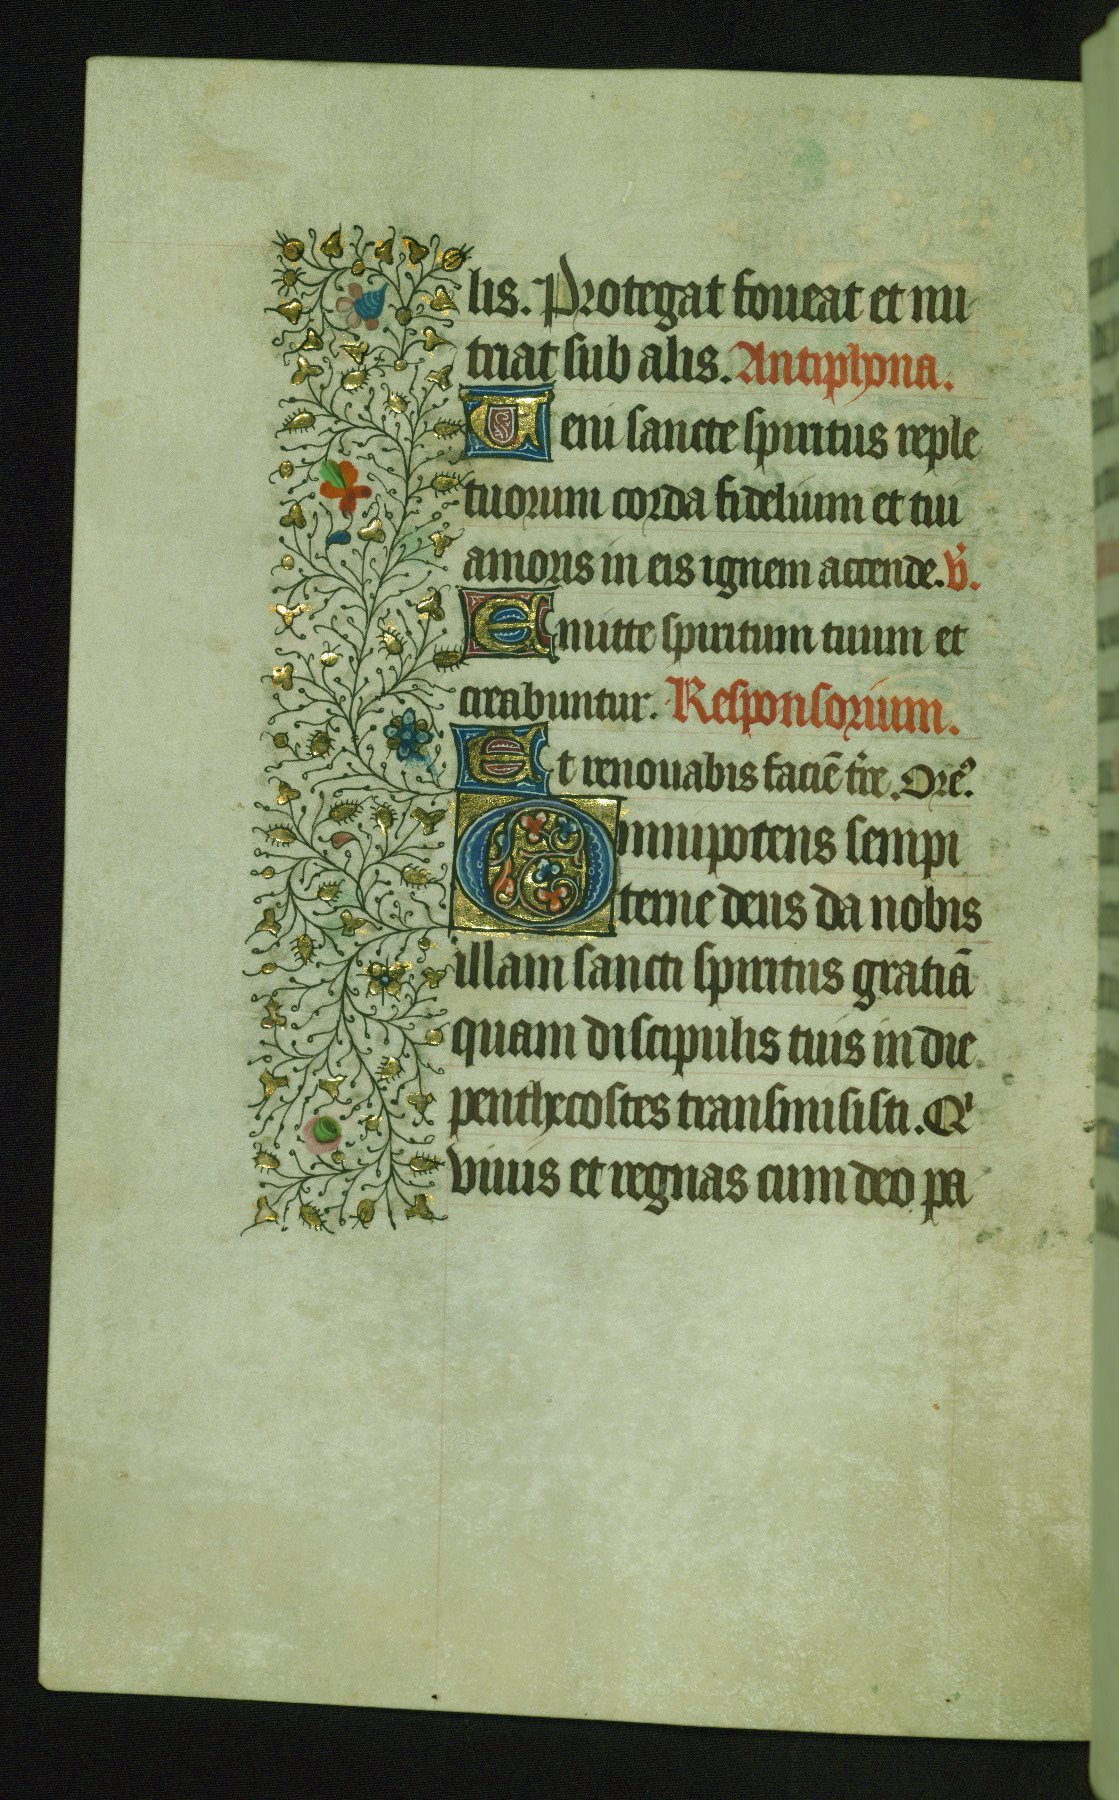 lis. Protegat foueat et nu
triat sub alis. Antiphona.
Ueni sancte spiritus reple
tuorum corda fidelium et tui
amoris in eis ignem accende. V̄.
Emitte spiritum tuum et
creabuntur. Responsorium.
Et renouabis faciē tr̄e. Orē.
Omnipotens sempi
terne deus da nobis
illam sancti spiritus gratiā
quam discipulis tuis in die
penthecostes transmisisti. Qⁱ
viuis et regnas cum deo pa